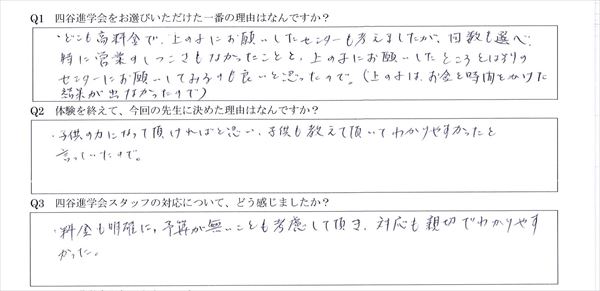 Q1 四谷進学会をお選びいただけた一番の理由はなんですか？
・どこも高料金で、上の子にお願いしたセンターも考えましたが、回数も選べ、
特に営業のしつこさもなかったことと、上の子にお願いしたところとは別の
センターにお願いしてみるのも良いと思ったので。(上の子は、お金と時間をかけた
結果が出なかったので)
Q2 体験を終えて、今回の先生に決めた理由はなんですか？
・子供の力になって頂ければと思い、子供も教えて頂いてわかりやすかったと
言っていたので。
Q3 四谷進学会スタッフの対応について、どう感じましたか？
・料金も明確に、予算が無いことも考慮して頂き、対応も親切でわかりやす
かった。